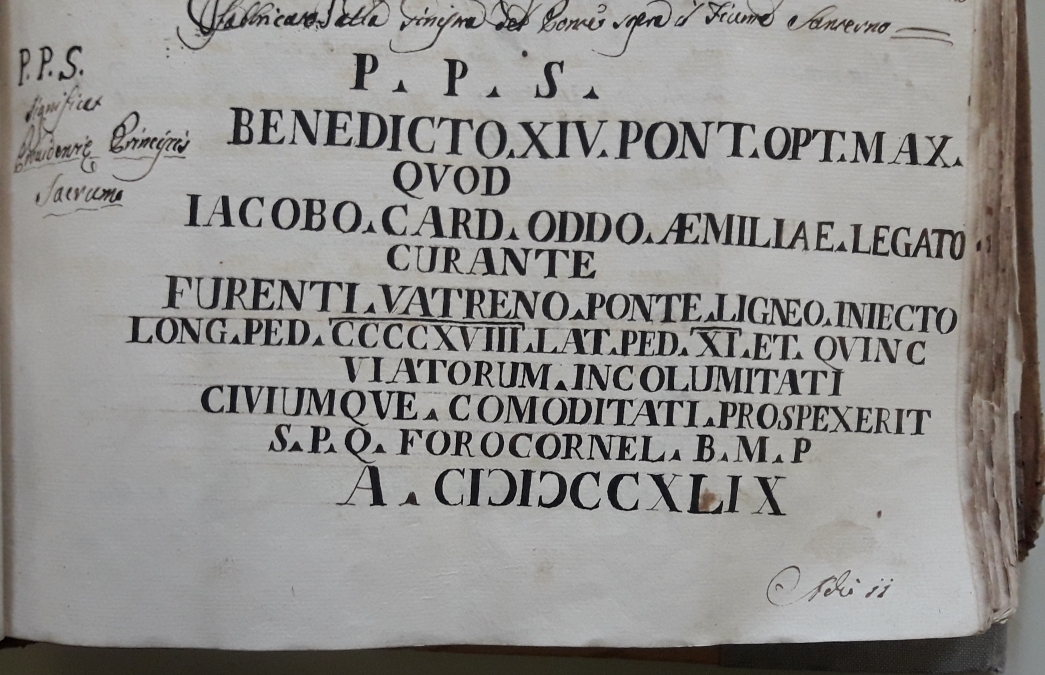 Fabbricare dalla vicina del Ponte sopra il Fiume Santerno
P.P.S.
significa
Providentiæ Principis
Sacrum
P. P. S.
BENEDICTO.XIV.PONT.OPT.MAX.
QVOD
IACOBO.CARD.ODDO.ÆMILIAE.LEGATO.
CURANTE
FURENTI.VATRENO.PONTE.LIGNEO.INIECTO
LONG.PED.CCCCXVIII.LAT.PED.XI.ET.QVINC
VIATORUM.INCOLUMITATI
CIVIUMQVE.COMODITATI.PROSPEXERIT
S.P.Q.FOROCORNEL.B.M.P
A.CIƆIƆCCXLIX
Adi ii